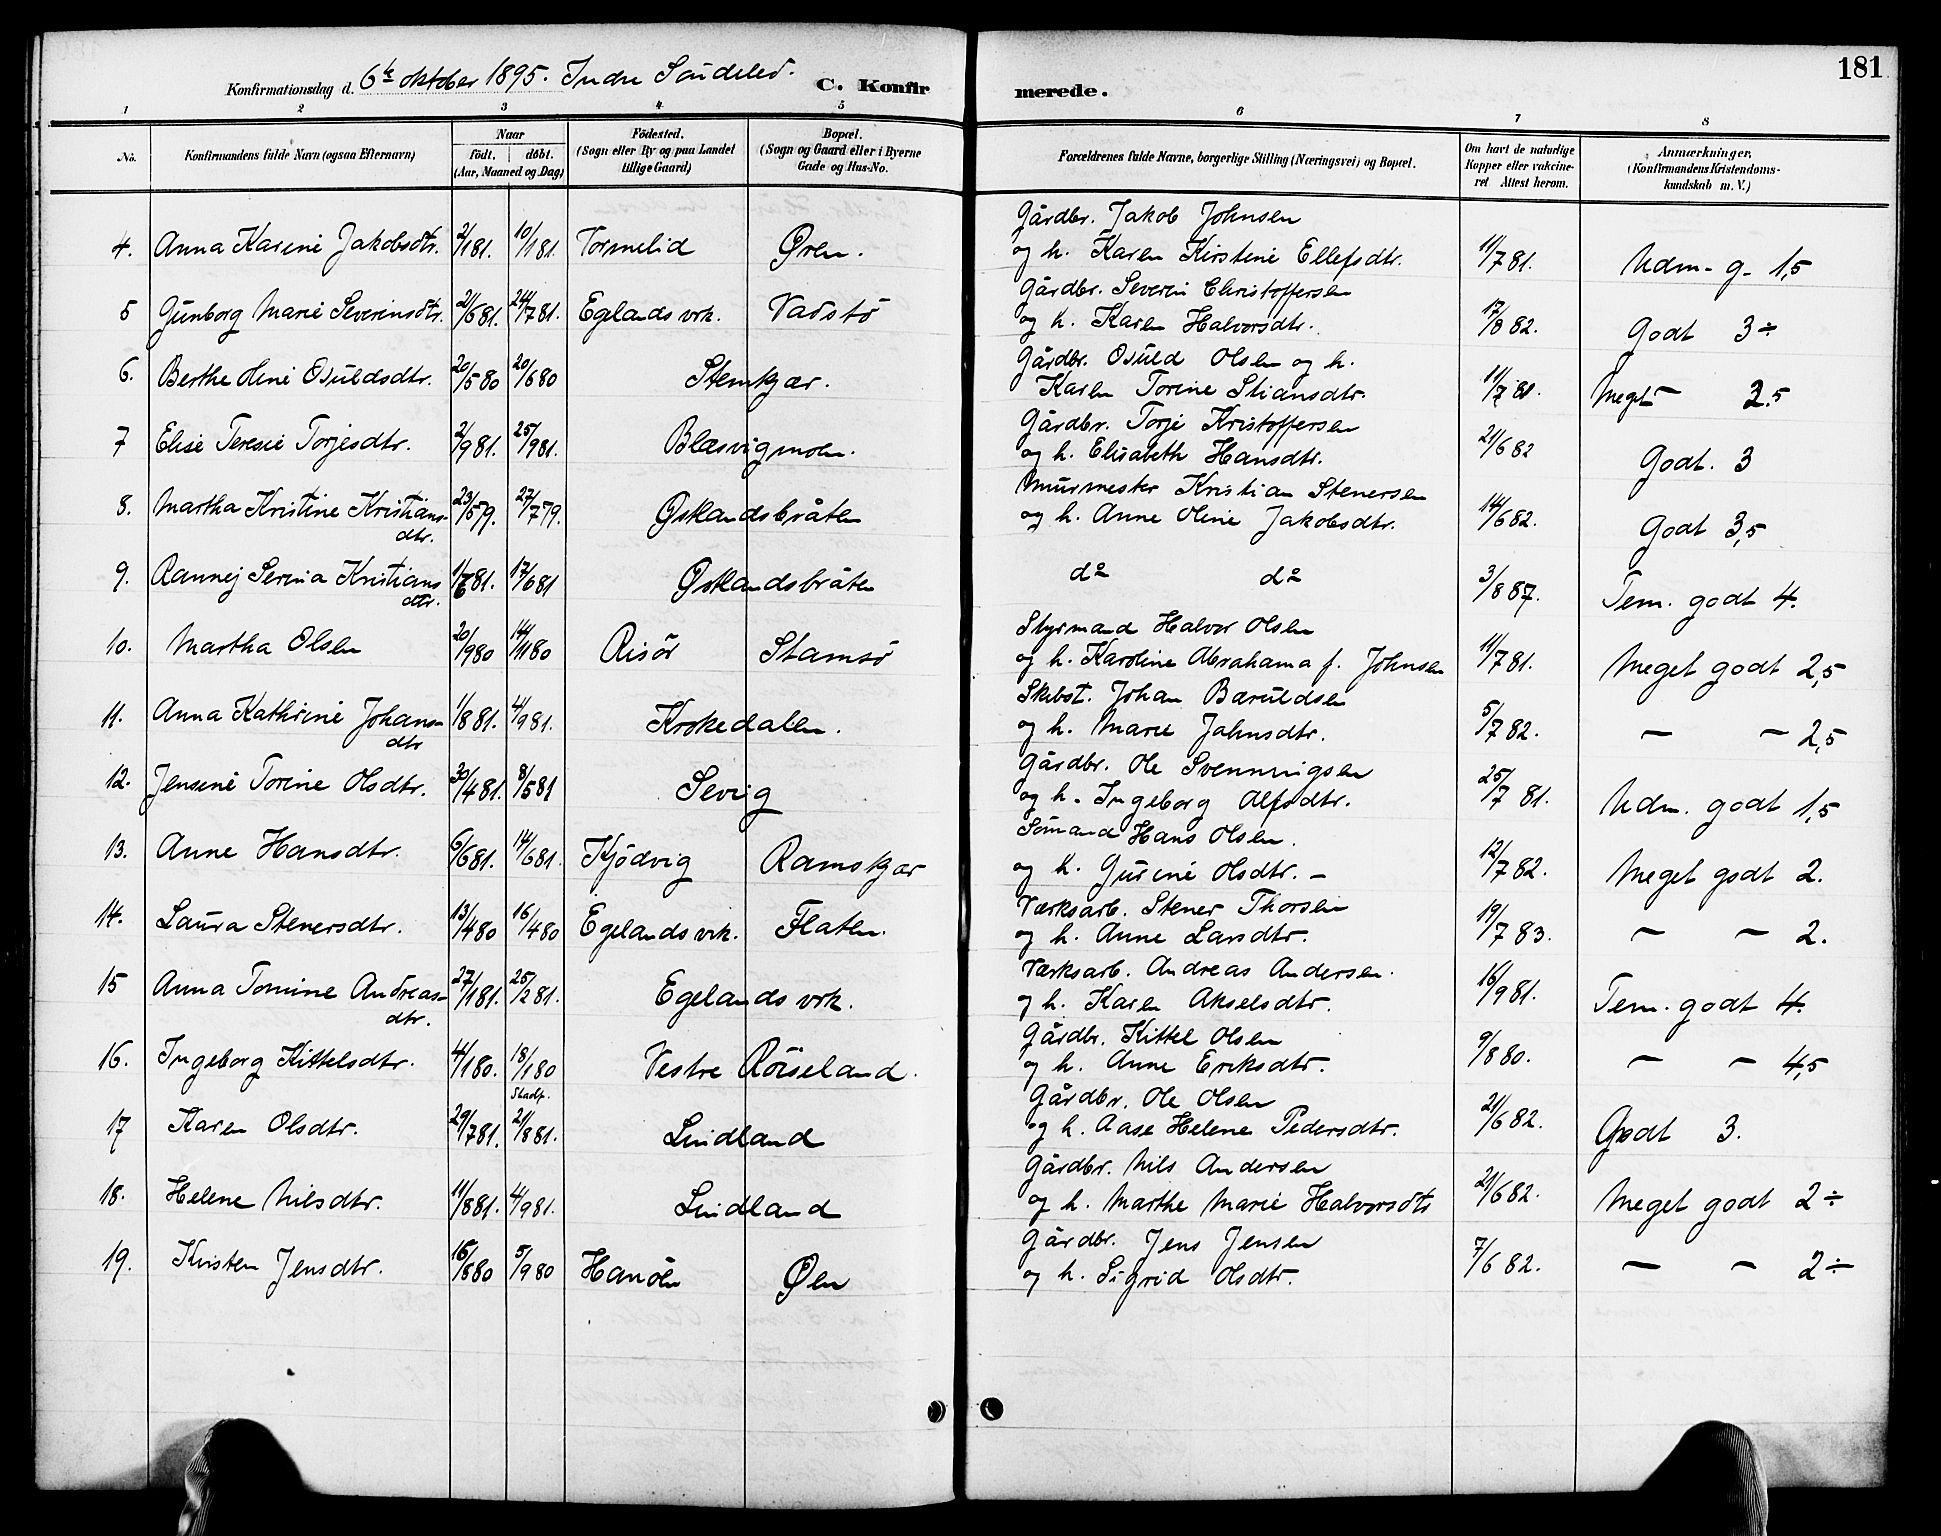 181
Konfirmationsdag d. 6te oktober 1895. Indre Söndeled.
C. Konfirmerede.
1 2 3 4 5 6 7 8
No. Konfirmandens fulde Navn (ogsaa Efternavn) Naar födt. döbt. (Aar, Maaned og Dag) Födested. (Sogn eller By og paa Landet tillige Gaard) Bopæl. (Sogn og Gaard eller i Byerne Gade og Hus-No. Forældrenes fulde Navne, borgerlige Stilling (Næringsvei) og Bopæl. Om havt de naturlige Kopper eller vakcineret Attest herom. Anmærkninger. (Konfirmandens Kristendomskundskab m. V.)
Gårdbr. Jakob Johnsen
4. Anna Karine Jakobsdtr. 2/1 81. 10/1 81. Tormelid Øren. og h. Karen Kirstine Ellefsdtr. 11/7 81. Udm. g. 1,5
Gårdbr. Severin Christoffersen
5 Gunborg Marie Severinsdtr. 21/6 81. 24/7 81. Eglands vrk. Vadstö og h. Karen Halvorsdtr. 17/8 82. Godt 3÷
Gårdbr. Osuld Olsen og h.
6. Berthe Oline Osuldsdtr. 20/5 80 20/6 80 Stemkjær. Karen Torine Stiansdtr. 11/7 81. Meget — 2.5
Gårdbr. Torje Kristoffersen
7 Elise Teresie Torjesdtr. 2/9 81. 25/9 81. Blæsvigmoen. og h. Elisabeth Hansdtr. 21/6 82 Godt. 3
Murmester Kristian Stenersen
8. Martha Kristine Kristiansdtr. 23/5 79. 27/7 79. Østlandsbråten og h. Anne Oline Jakobsdtr. 14/6 82. Godt 3,5
9. Rannej Serina Kristiansdtr. 1/6 81. 17/6 81 Østlandsbråten do do 3/8 87. Tem. godt 4.
Styrmand Halvor Olsen
10. Martha Olsen 20/9 80 14/11 80 Risör Stamsö og h. Karoline Abrahama f. Johnsen 11/7 81. Meget godt 2,5
Skibst. Johan Baruldsen
11. Anna Kathrine Johansdtr 1/8 81. 4/9 81. Krokedalen. og h. Marie Jahnsdtr. 5/7 82. — — 2,5
Gårdbr. Ole Svenningsen
12. Jensine Torine Olsdtr. 30/4 81. 8/5 81 Sevig og h. Ingeborg Alfsdtr. 25/7 81. Udm. godt 1,5
Sömand Hans Olsen.
13. Anne Hansdtr. 6/6 81. 14/6 81. Kjödvig Ramskjær og h. Gurine Olsdtr. — 12/7 82. Meget godt 2.
Værksarb. Stener Thorsen
14. Laura Stenersdtr. 13/4 80 16/4 80 Egelands vrk. Flaten. og h. Anne Larsdtr. 19/7 83. — — 2.
Værksarb. Andreas Andersen.
15 Anna Tomine Andreasdtr. 27/1 81. 25/2 81. Egelands vrk. og h. Karen Akselsdtr. 16/9 81. Tem. godt 4.
Gårdbr. Kittel Olsen
16. Ingeborg Kittelsdtr. 4/1 80. 18/1 80 Vestre Röiseland. og h. Anne Eriksdtr. 9/8 80. — — 4,5
Gårdbr. Ole Olsen
17 Karen Olsdtr. 29/7 81. 21/8 81. Lindland og h. Aase Helene Pedersdtr. 21/6 82. Godt 3.
Gårdbr. Nils Andersen
18. Helene Nilsdtr. 11/8 81. 4/9 81. Lindland og h. Marthe Marie Halvorsdtr 21/6 82. Meget godt 2÷
Gårdbr. Jens Jensen
19. Kirsten Jensdtr. 15/8 80 5/9 80 Hanöen Øen og h. Sigrid Olsdtr. 7/6 82. — — 2÷